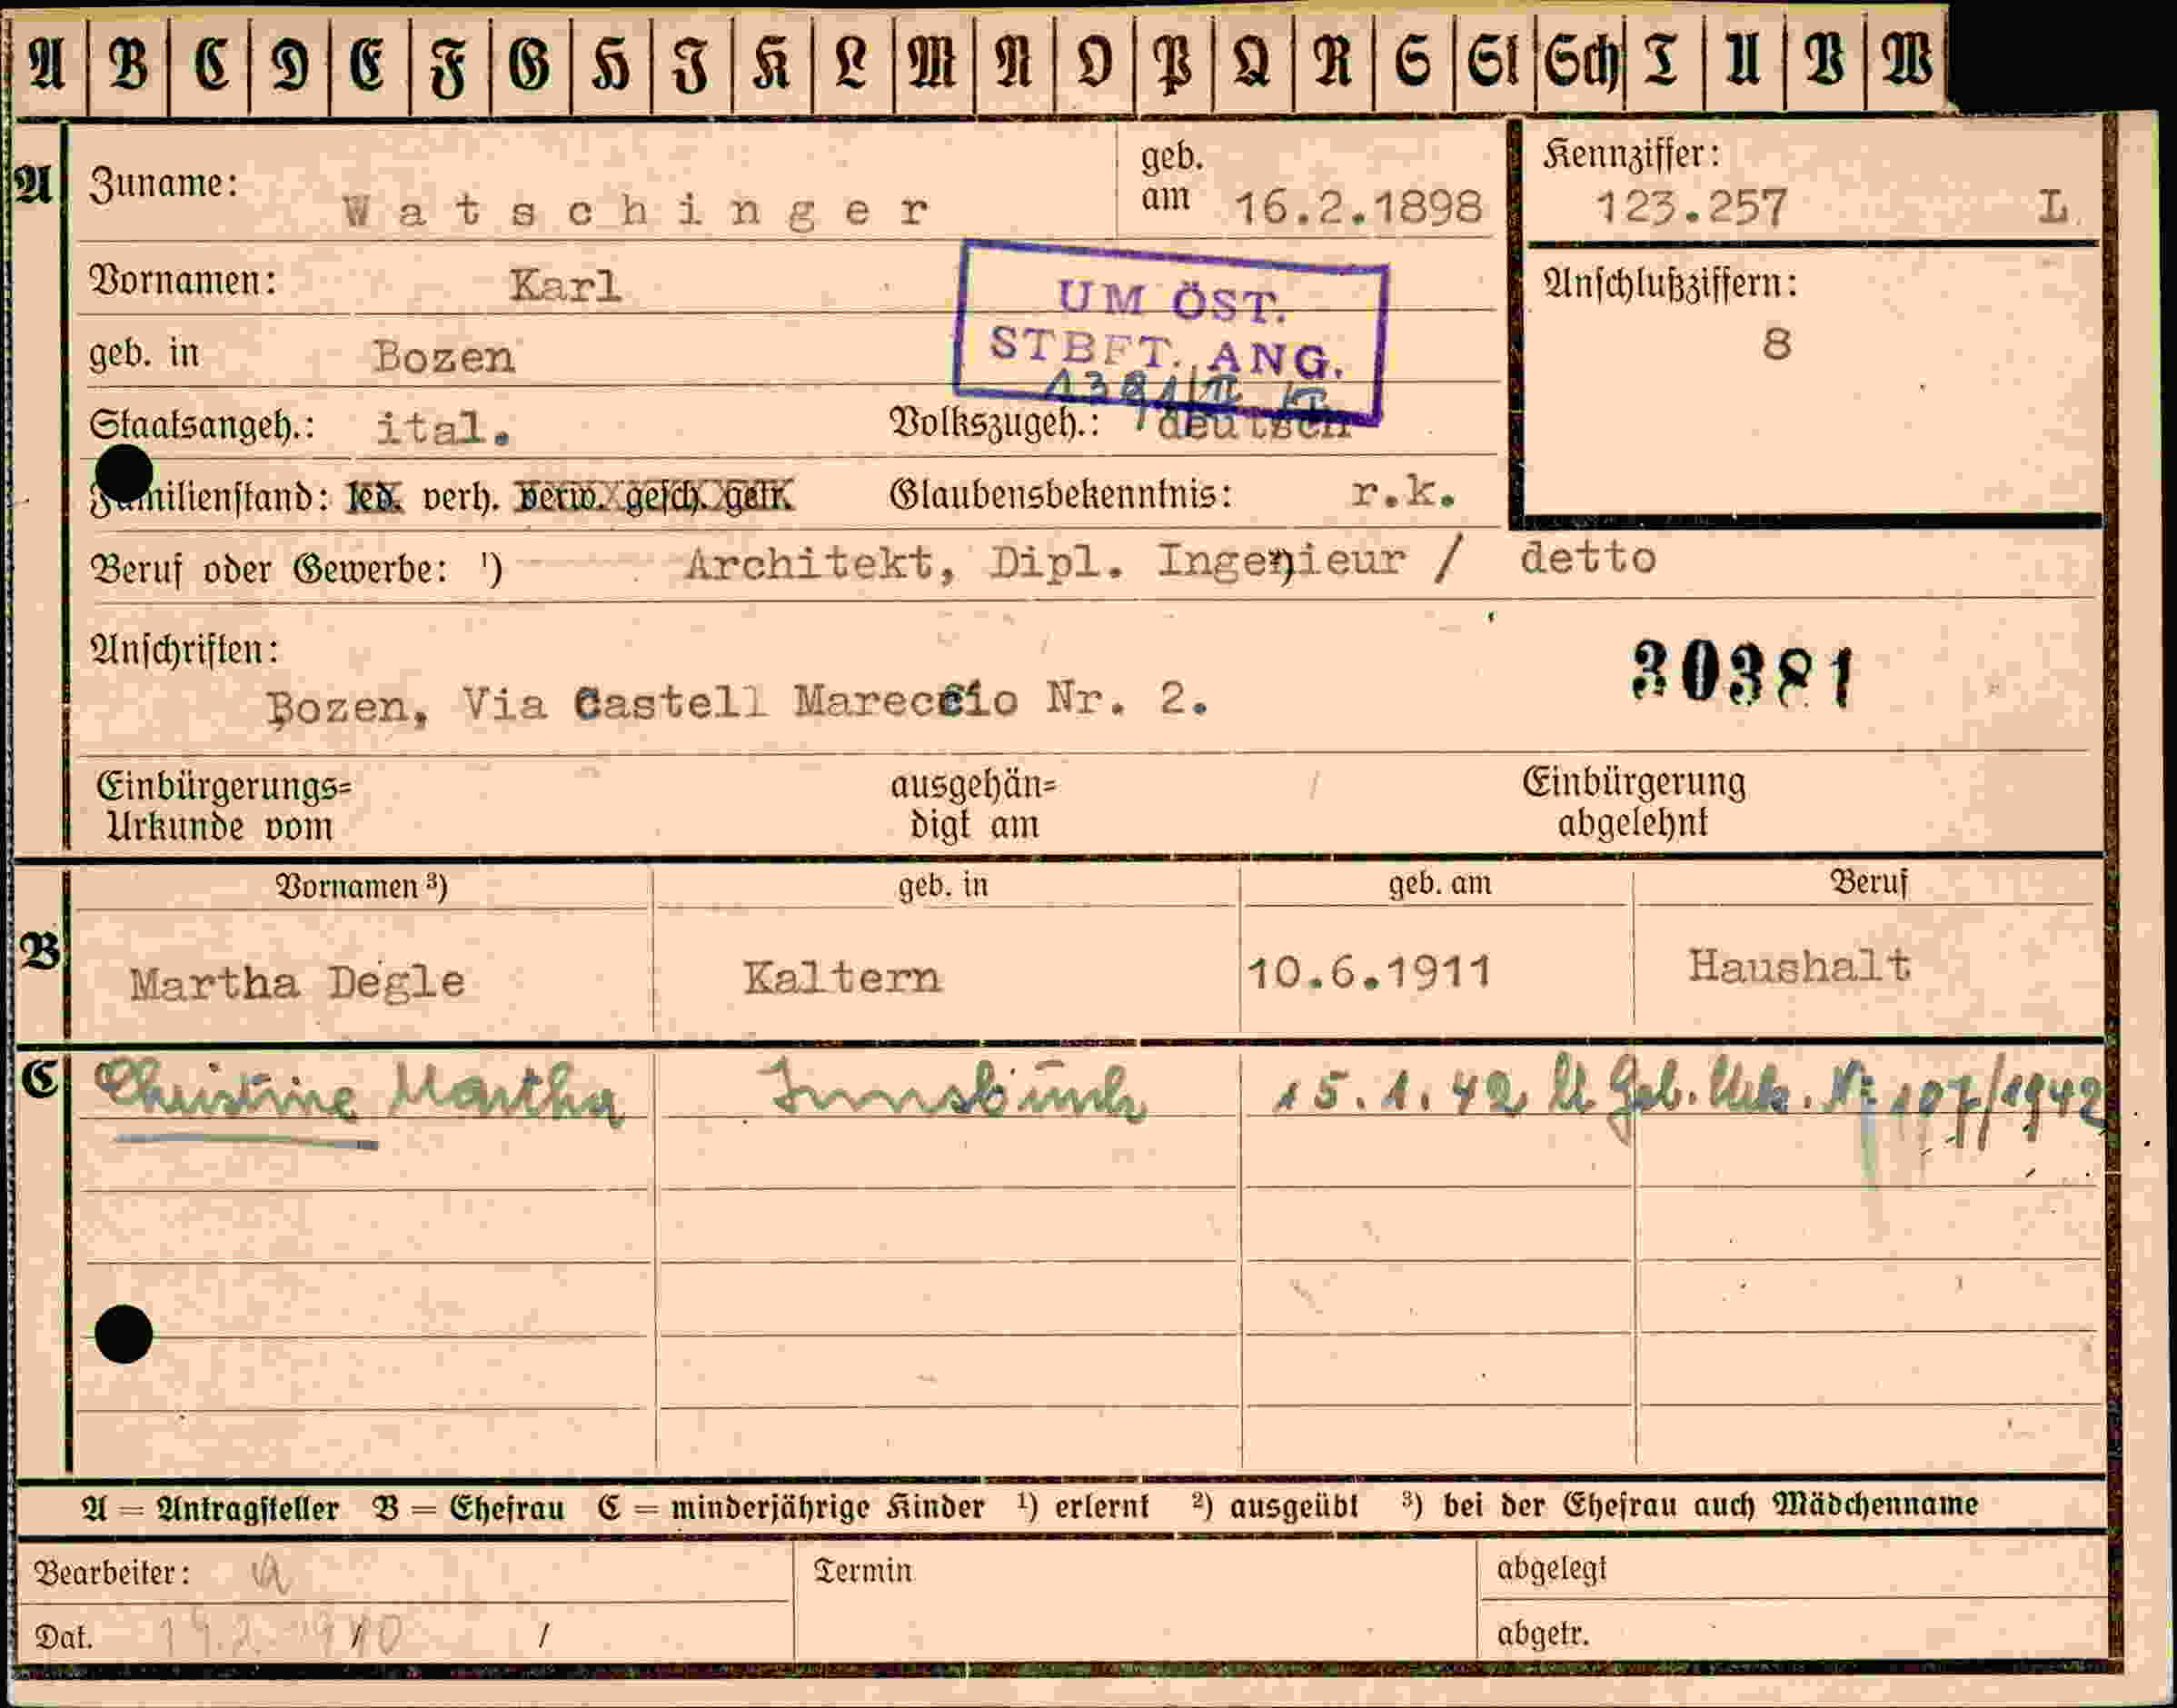 A B C D E F G H J K L M N O P Q R S St Sch T U V W
A Zuname: Watschinger geb. am 16.2.1898 Kennziffer: 123.257 L.
Vornamen: Karl
UM ÖST.
STBFT. ANG.
Anschlußziffern:
8
geb. in Bozen
Staatsangeh.: ital. Volkszugeh.: deutsch
Familienstand: led. verh. verw. gesch. getr. Glaubensbekenntnis: r.k.
Beruf oder Gewerbe: ¹) Architekt, Dipl. Ingenieur / detto
Anschriften:
30381
Bozen, Via Castell Mareccio Nr. 2.
Einbürgerungs=
Urkunde vom
ausgehän=
digt am
Einbürgerung
abgelehnt
Vornamen ³) geb. in geb. am Beruf
B Martha Degle Kaltern 10.6.1911 Haushalt
C Christine Martha Innsbruck 15.1.42 Geb. Urk. Nr. 107/1942
A = Antragsteller B = Ehefrau C = minderjährige Kinder ¹) erlernt ²) ausgeübt ³) bei der Ehefrau auch Mädchenname
Bearbeiter: Termin abgelegt
Dat. / abgetr.